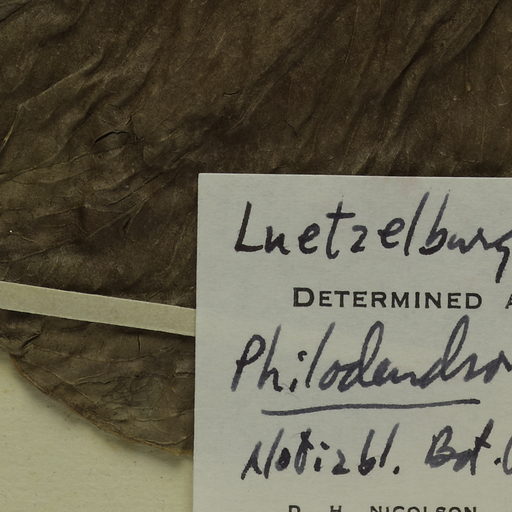 Luetzelburg
DETERMINED A
Philodendron
Notizbl. Bot.
D. H. NICOLSON